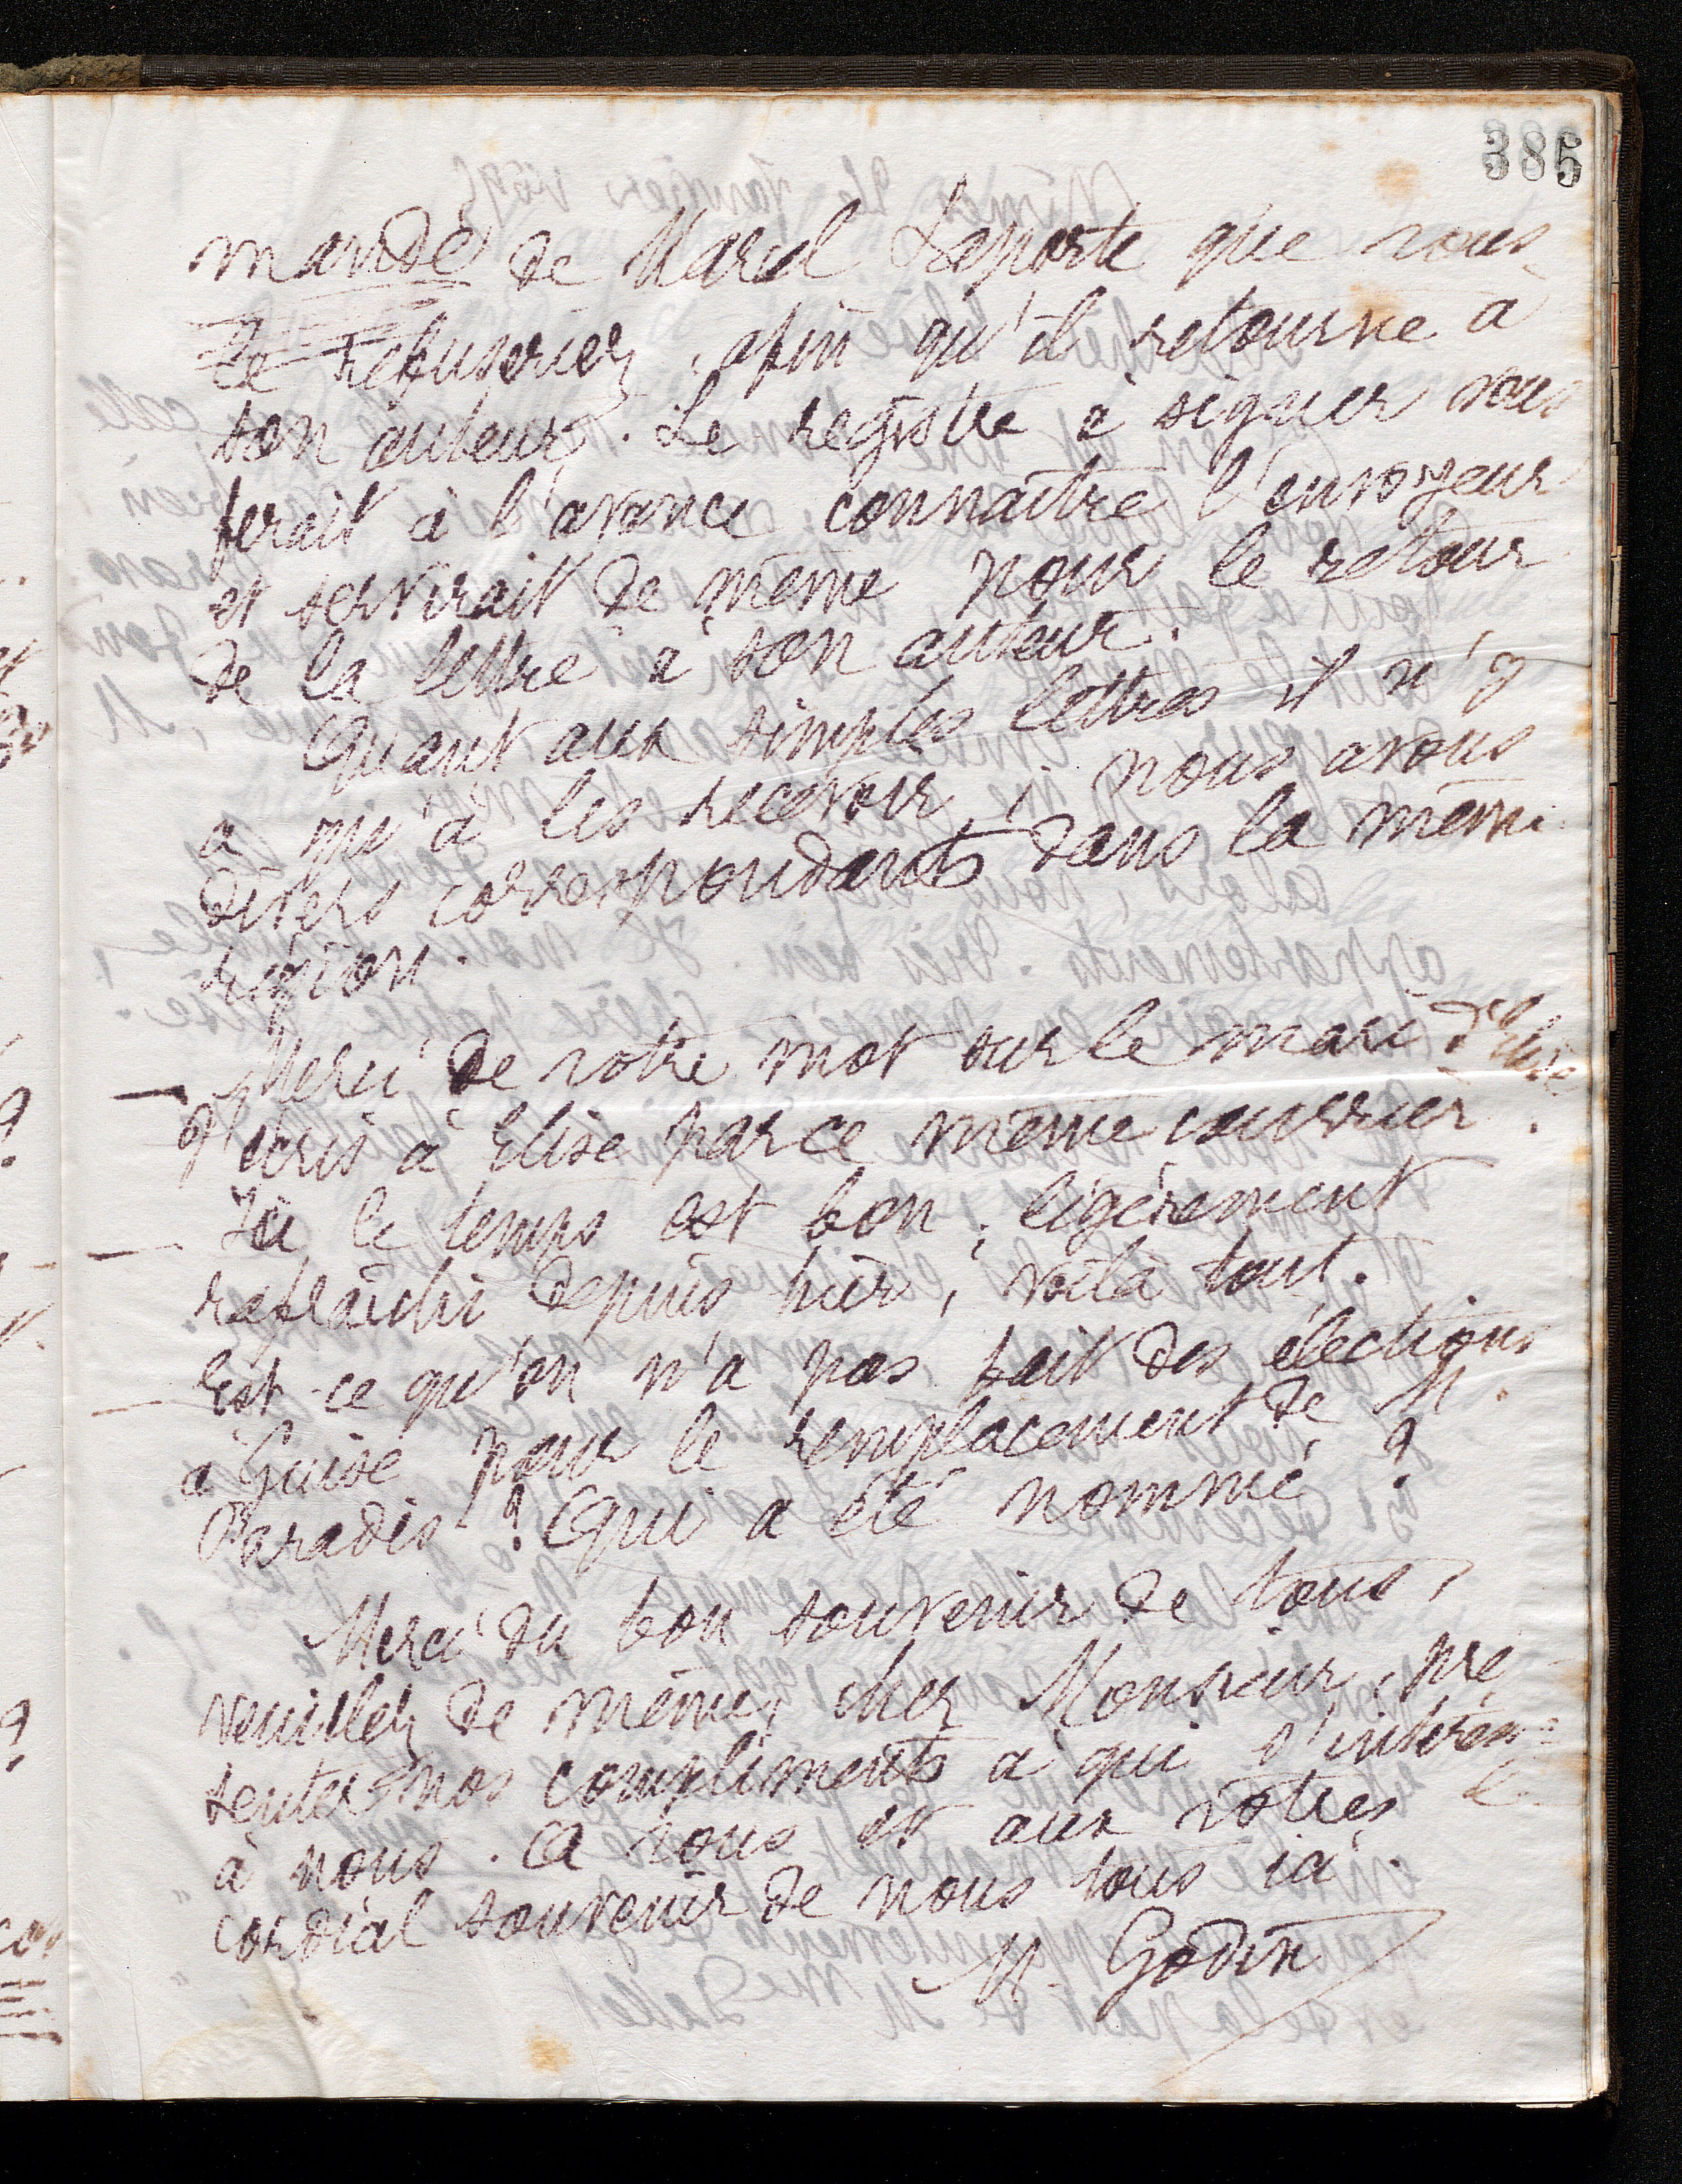 385
mandé de Marcel Laporte que vous
le refuseriez, afin qu'il retourne à
son auteur. Le registre à signer vous
ferait à l'avance connaître l'envoyeur
et servirait de même pour le retour
de la lettre à son auteur.
Quant aux simples lettres il n'y
a qu'à les recevoir, nous avons
divers correspondants dans la même
région.
— Merci de votre mot sur le mari d'Elise
J'écris à Elise par ce même courrier.
— Ici le temps est bon; légèrement
rafraîchi depuis hier, voilà tout.
— Est-ce qu'on n'a pas fait des élections
à Guise pour le remplacement de M.
Paradis? Qui a été nommé?
Merci du bon souvenir de tous,
veuillez de même, cher Monsieur, pré
senter nos compliments à qui s'intéresse
à nous. A vous et aux vôtres le
cordial souvenir de nous tous ici.
M. Godin